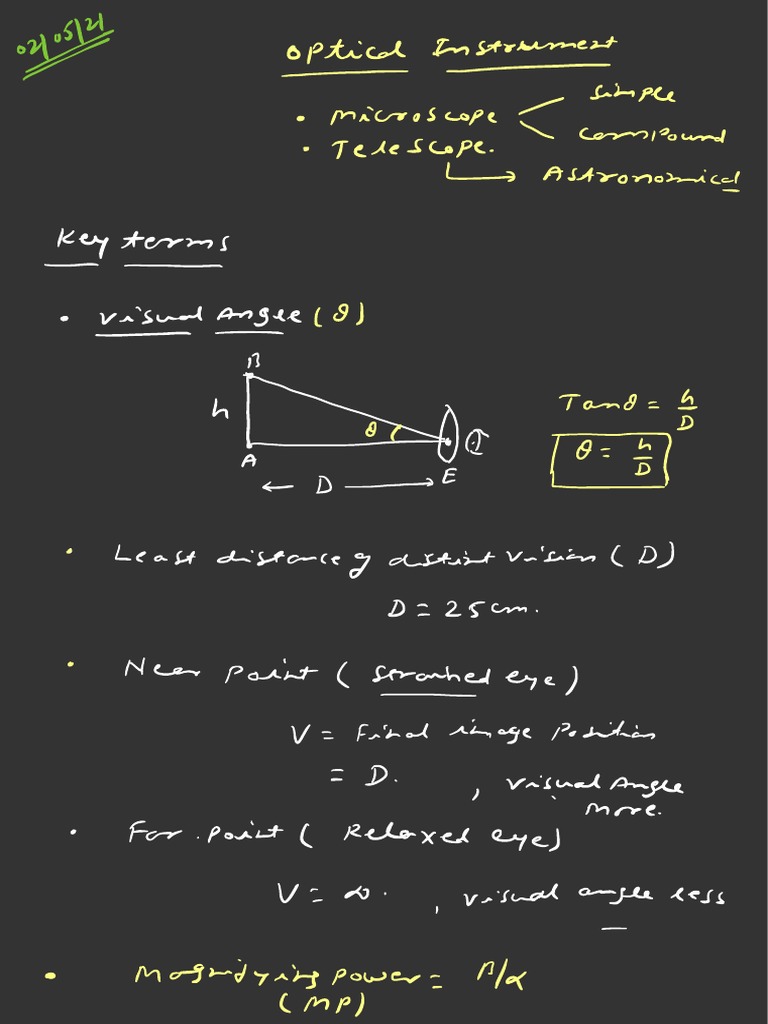 02/05/21
Optical Instrument
• Microscope
Simple
Compound
• Telescope.
Astronomical
Key terms
• Visual Angle (θ)
B
h
θ
A
D
E
Tanθ = h/D
θ = h/D
• Least distance of distint vision (D)
D = 25cm.
• Near point ( strained eye)
V = Final image position
= D. , visual Angle
more.
• Far point ( Relaxed eye)
V = ∞. , visual angle less
• Magnifying power = β/α
(MP)